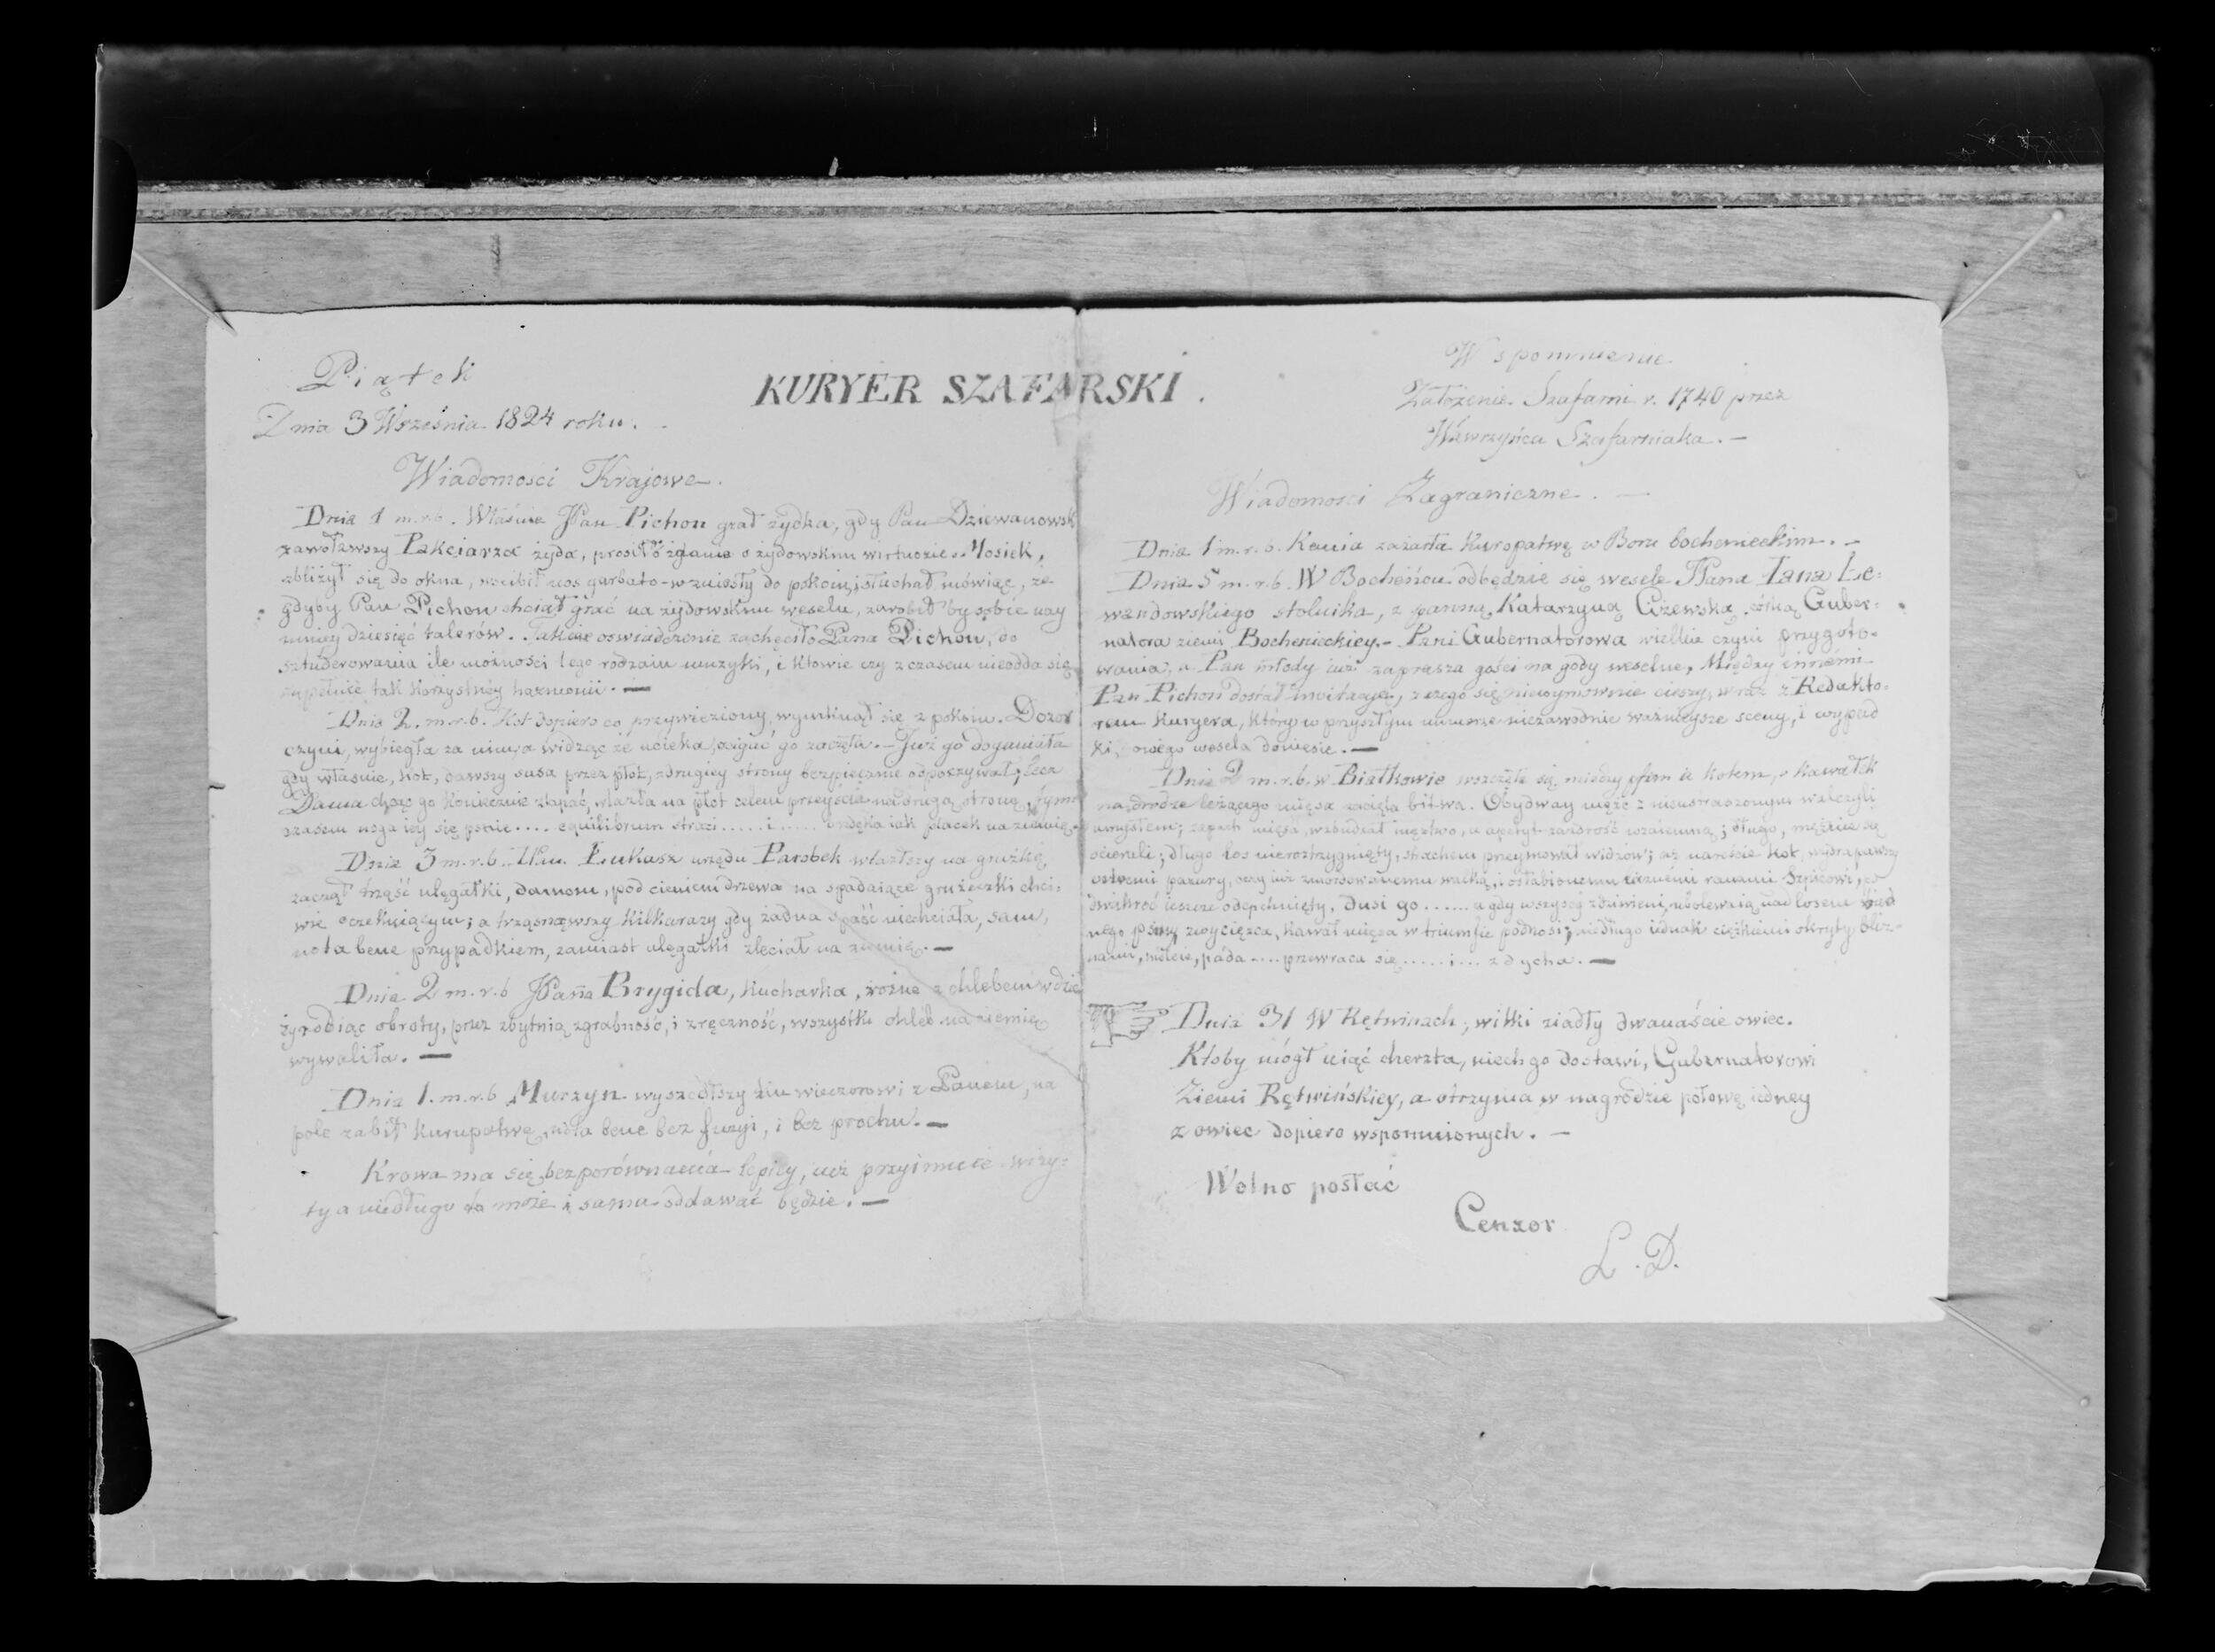 Piątek
Dnia 3 Września 1824 roku.
KURYER SZAFARSKI.
Wspomnienie
Założenie Szafarni r. 1740 przez
Wawrzyńca Szafarniaka. —
Wiadomosci Krajowe.
Dnia 1 m.r.b. Właśnie JPan Pichon grał żydka, gdy Pan Dziewanowsk
zawoławszy Pakciarza żyda, prosił o zdanie o żydowskim wirtuozie. Mosiek,
zbliżył się do okna, wścibił nos garbato-wzniosły do pokoiu, i słuchał mówiąc, że
gdyby Pan Pichon chciał grać na żydowskim weselu, zarobił by sobie nay
mniey dziesięć talerów. Takowe oswiadczenie zachęciło Pana Pichon, do
sztuderowania ile możności tego rodzaiu muzyki, i kto wie czy z czasem nie odda się
zupełnie tak korzystnéy harmonii. —
Dnia 2. m.r.b. Kot dopiero co przywieziony, wymknął się z pokoiu. Dozor
czyni, wybiegła za nim, a widząc że ucieka, ścigać go zaczęła. — Już go doganiała
gdy właśnie, kot, dawszy susa przez płot, z drugiey strony bezpiecznie odpoczywał; lecz
Dama chcąc go koniecznie złapać, wlazła na płot celem przeyścia na drugą stronę, tym
czasem noga iey się psnie .... equilibrum straci ..... i ..... bęcka iak placek na ziemię.
Dnia 3 m.r.b. Łukasz urzędu Parobek wlazłszy na gruszkę,
zaczął trząść ulęgałki, damom, pod cieniem drzewa na spadaiące gruszeczki chci-
wie oczekuiącym; a trząsnąwszy kilka razy gdy żadna spaść niechciała, sam,
nota bene przypadkiem, zamiast ulęgałki zleciał na ziemię. —
Dnia 2 m.r.b JPana Brygida, kucharka, rożne z chlebem w dzie
ży robiąc obroty, przez zbytnią zgrabność, i zręczność, wszystk chleb na ziemię
wywaliła. —
Dnia 1. m.r.b Murzyn wyszedłszy ku wieczorowi z Panem, na
pole zabił kuropatwę, nota bene bez fuzyi, i bez prochu. —
Krowa ma się bezporównania lepiey, iuż przyimuie wizy-
ty a niedługo to może i sama oddawać będzie. —
Wiadomości Zagraniczne. —
Dnia 1 m.r.b. Kania zażarła Kuropatwę w Boru bochenieckim. —
Dnia 5 m.r.b. W Bocheńcu odbędzie się wesele JPana Iana Le-
wandowskiego stolnika, z panną Katarzyną Ciżewską córką Guber-
natora ziemi Bochenieckiey. — Pani Gubernatorowa wielkie czyni przygoto-
wania, a Pan młody iuż zaprasza gości na gody weselne, Między innémi
Pan Pichon dostał inwitacyą, z czego się niewymownie cieszy, wraz z Redakto-
rem Kuryera, który w przyszłym numerze niezawodnie ważnieysze sceny, i wypad
ki, owego wesela doniesie. —
Dnia 2 m.r.b. w Białkowie wszczęła się, między psem a kotem, o kawałek
na drodze leżącego mięsa zacięta bitwa. Obydway męże z nieustraszonym walczyli
umysłem; zapach mięsa, wzbudzał męztwo, a apetyt zazdrość wzaiemną; długo, mężnie się
ścierali; długo los nieroztrzygnięty, strachem przeymował widzów; aż nareście kot, wydrapawszy
ostremi pazury, oczy iuż zmordowanemu walką, i osłabionemu licznémi ranami Szpicowi,
dwakroć ieszcze odepchnięty, dusi go ....... a gdy wszyscy zdziwieni, ubolewaią nad losem bied
nego psiny, zwycięzca, kawał mięsa w triumfie podnosi; niedługo iednak ciężkiemi okryty bliz-
nami, mdleie, páda .... przewraca się ..... i ... zdycha. —
Dnia 31 W Rętwinach, wilki ziadły dwanaście owiec.
Ktoby mógł uiąć cherzta, niech go dostawi, Gubernatorowi
Ziemi Rętwińskiey, a otrzyma w nagrodzie połowę iedney
z owiec dopiero wspomnionych. —
Wolno posłać
Cenzor
L.D.